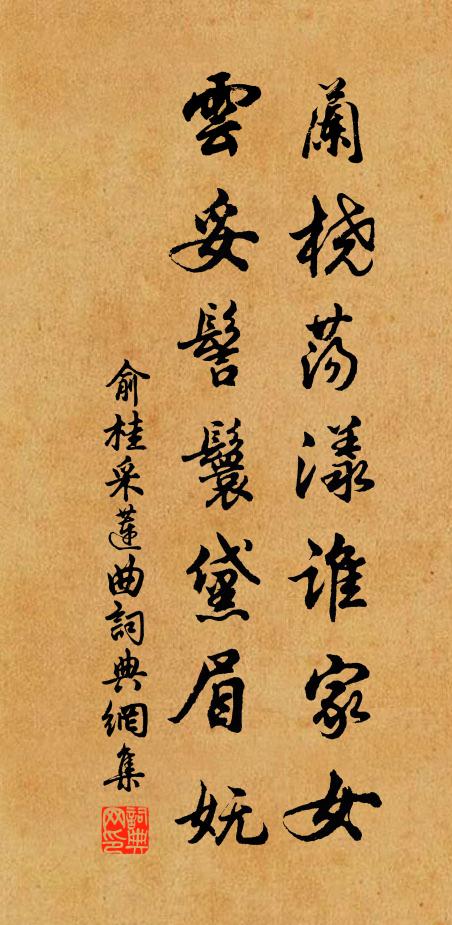 蘭橈蕩漾誰家女
雲妥髻鬟黛眉嫵
俞桂采蓮曲詞典網集
詞典網印